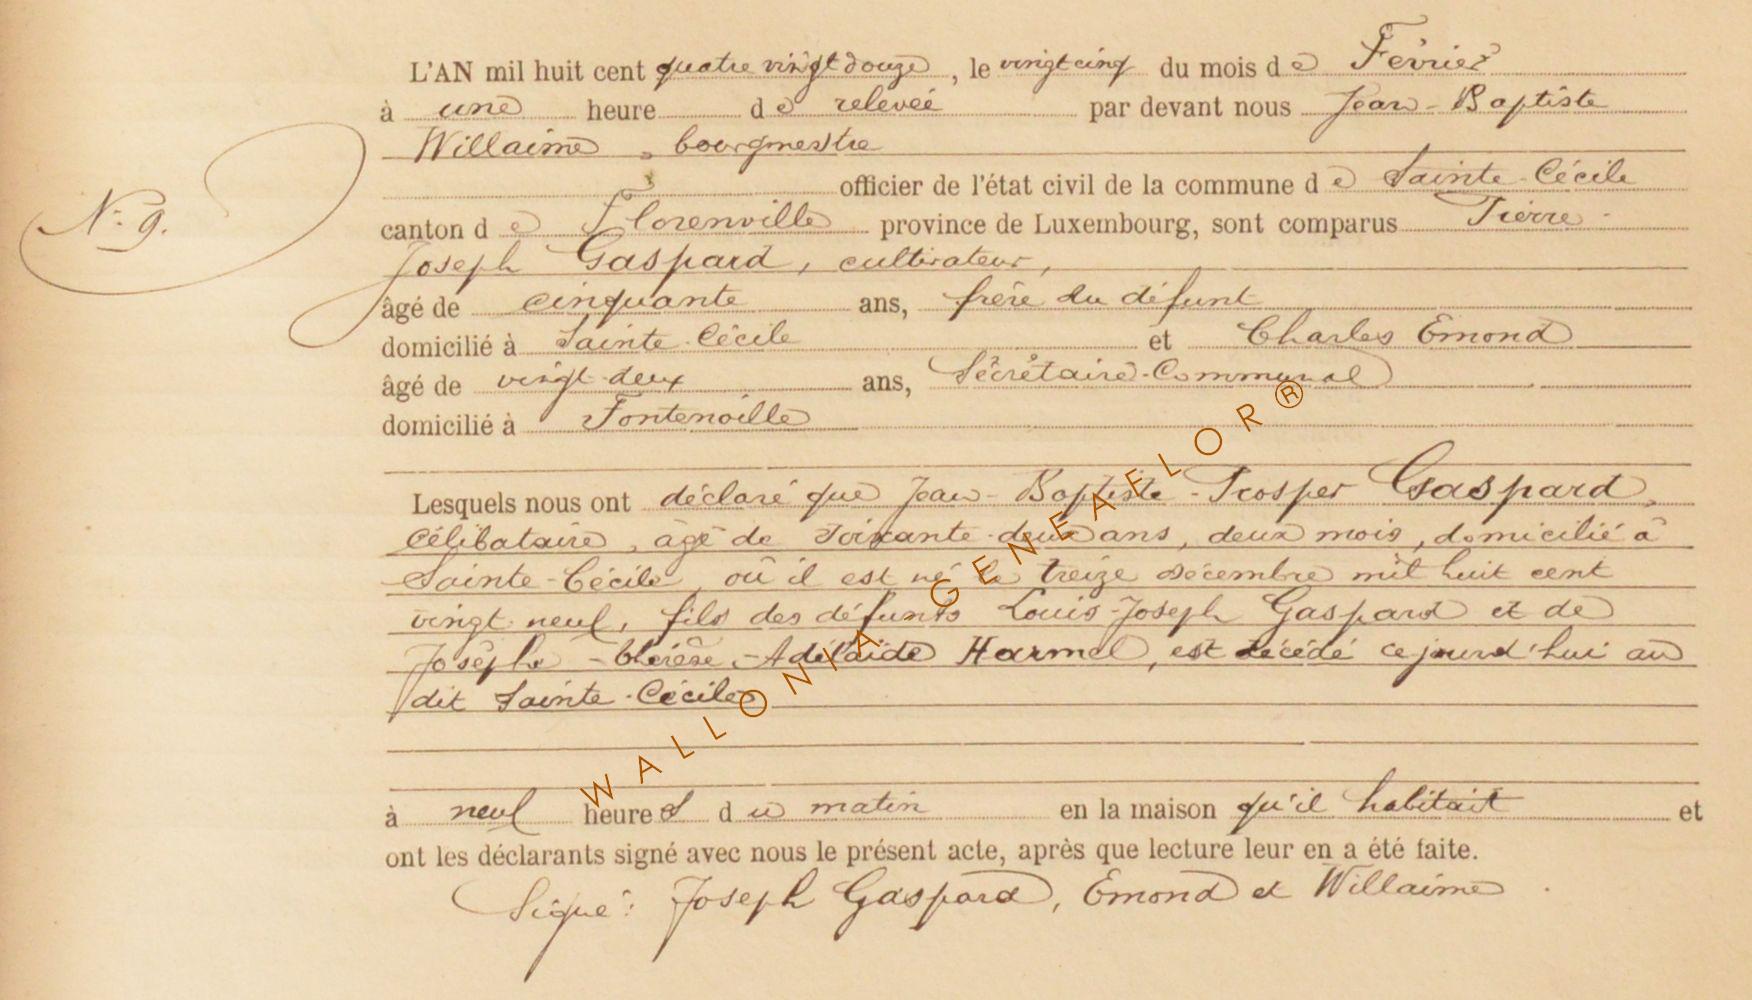 L'AN mil huit cent quatre vingt douze, le vingt cinq du mois de Février
à une heure de relevée par devant nous Jean-Baptiste
Willaime, bourgmestre
officier de l'état civil de la commune de Sainte-Cécile
N° 9.
canton de Florenville province de Luxembourg, sont comparus Pierre-
Joseph Gaspard, cultivateur,
âgé de cinquante ans, frère du défunt
domicilié à Sainte-Cécile et Charles Emond
âgé de vingt-deux ans, Secrétaire-Communal
domicilié à Fontenoille
Lesquels nous ont déclaré que Jean-Baptiste-Prosper Gaspard,
célibataire, âgé de soixante-deux ans, deux mois, domicilié à
Sainte-Cécile, où il est né le treize décembre mil huit cent
vingt-neuf, fils des défunts Louis-Joseph Gaspard et de
Josèphe-Thérèse-Adélaïde Harmel, est décédé cejourd'hui au
dit Sainte-Cécile
à neuf heures du matin en la maison qu'il habitait et
ont les déclarants signé avec nous le présent acte, après que lecture leur en a été faite.
Signé: Joseph Gaspard, Emond et Willaime.
WALLONIA GENEAFLOR®